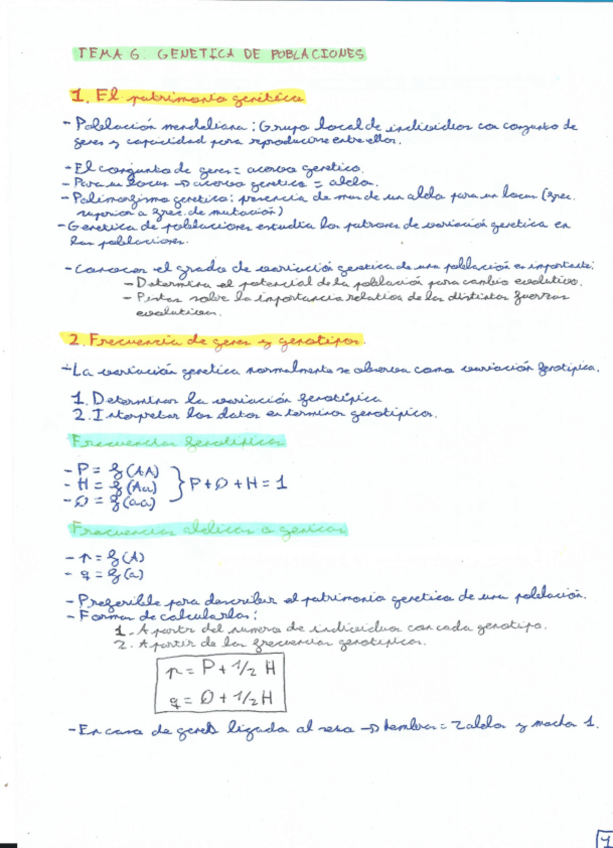 TEMA 6: GENETICA DE POBLACIONES
1. El patrimonio genético
- Población mendeliana: Grupo local de individuos con conjunto de
genes y capacidad para reproducirse entre ellos.
- El conjunto de genes = acervo genetico.
- Para un locus → acervo genetico = alelos.
- Polimorfismo genetico: presencia de mas de un alelo para un locus (frec.
superior a frec. de mutación)
- Genetica de poblaciones estudia los patrones de variación genetica en
las poblaciones.
- Conocer el grado de variación genetica de una población es importante:
- Determina el potencial de la población para cambio evolutivo.
- Pistas sobre la importancia relativa de las distintas fuerzas
evolutivas.
2. Frecuencia de genes y genotipos.
- La variación genetica normalmente se observa como variación fenotípica.
1. Determinar la variación fenotípica
2. Interpretar los datos en terminos genotípicos.
Frecuencias fenotipicas
- P = f(AA)
- H = f(Aa) } P + Q + H = 1
- Q = f(aa)
Frecuencias alelicas o genicas
- p = f(A)
- q = f(a)
- Preferible para describir el patrimonio genetico de una población.
- Formas de calcularlas:
1. A partir del numero de individuos con cada genotipo.
2. A partir de las frecuencias genotipicas.
p = P + 1/2 H
q = Q + 1/2 H
- En caso de genes ligados al sexo → Hembra = 2 alelos y macho 1.
1